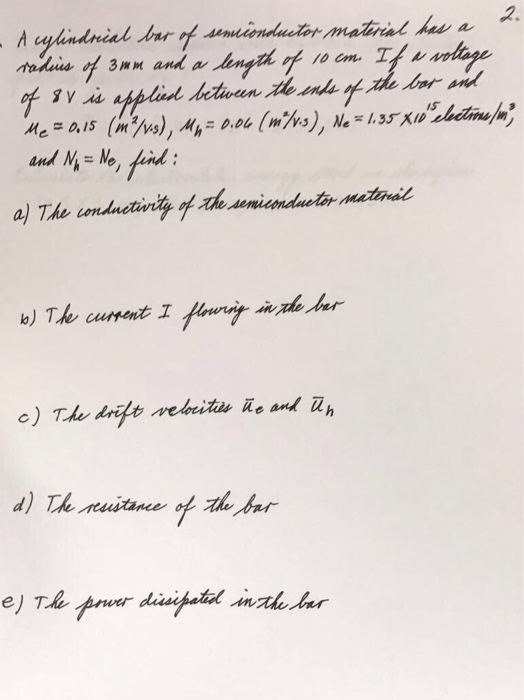 2.
A cylindrical bar of semiconductor material has a
radius of 3mm and a length of 10 cm. If a voltage
of 8V is applied between the ends of the bar and
μe = 0.15 (m²/v.s), μh = 0.06 (m²/v.s), Ne = 1.35 X10¹⁵ electrons/m³,
and Nh = Ne, find:
a) The conductivity of the semiconductor material
b) The current I flowing in the bar
c) The drift velocities ūe and ūh
d) The resistance of the bar
e) The power dissipated in the bar